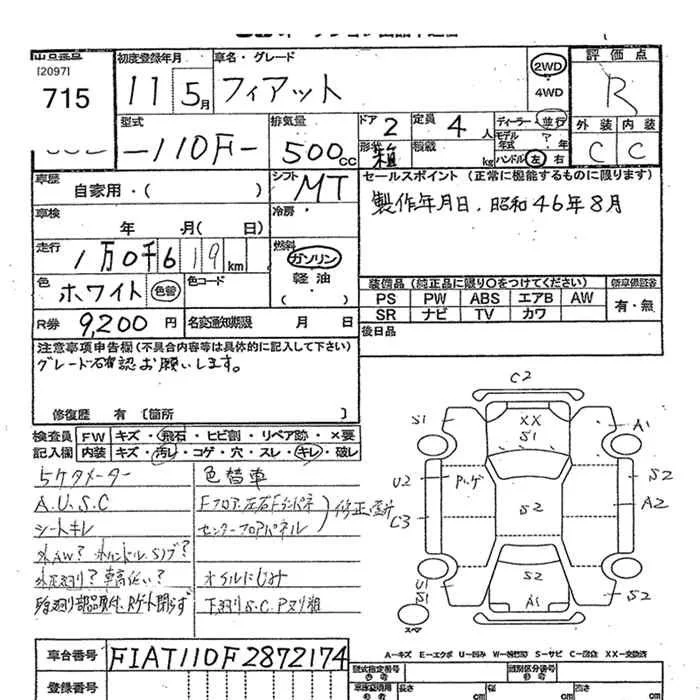 [2097]
715
初度登録年月
11 5月
車名・グレード
フィアット
2WD
4WD
評価点
R
型式
-110F-
排気量
500cc
ドア 2
定員 4人
形状 箱
積載 kg
ディーラー 並行
モデル年式 ? 年
ハンドル 左 右
外装 内装
C C
車歴
自家用・( )
シフト MT
セールスポイント(正常に機能するものに限ります)
製作年月日、昭和46年8月
車検
年 月( 日)
冷房・
走行
1万0千619km
燃料
ガソリン
軽油・
( )
色
ホワイト 色替
色コード
装備品(純正品に限り○をつけてください)
PS PW ABS エアB AW
SR ナビ TV カワ
新車保証書
有・無
R券 9,200円
名変通知期限 月 日
後日品
注意事項申告欄(不具合内容等は具体的に記入して下さい)
グレード石確認お願いします。
修復歴 有 〔箇所 〕
検査員記入欄
FW キズ・飛石・ヒビ割・リペア跡・×要
内装 キズ・汚レ・コゲ・穴・スレ・キレ・破レ
5ケタメーター
色替車
A.U.S.C
Fフロア、左右Fインパネ
シートキレ
センターフロアパネル
修正歪
外AW? 外ハンドル、Sノブ?
外足廻り? 車高低い?
オイルにじみ
下廻りS.C.Pヌリ粗
C2
S1
XX
S1
A1
U2
P.ゲ
S2
C3
S2
A2
U1
S1
S2
A1
S2
スペア
A-キズ E-エクボ U-凹み W-補修跡 S-サビ C-腐食 XX-交換済
車台番号
FIAT110F2872174
型式指定番号
類別区分番号
登録番号
長さ cm
幅 cm
高さ cm